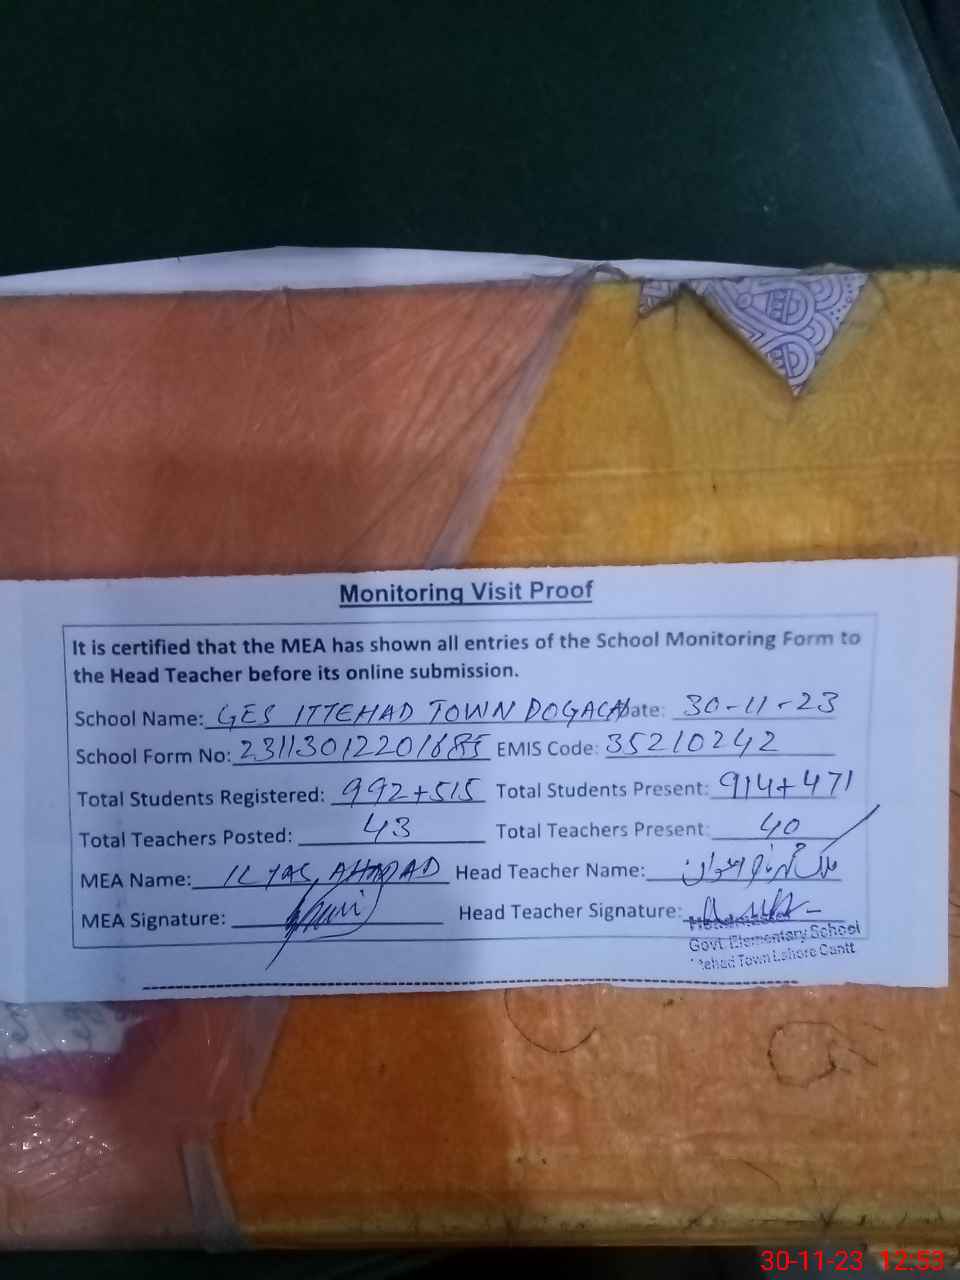 Monitoring Visit Proof
It is certified that the MEA has shown all entries of the School Monitoring Form to
the Head Teacher before its online submission.
School Name: GES ITTEHAD TOWN DOGACA Date: 30-11-23
School Form No: 23113012201685 EMIS Code: 35210242
Total Students Registered: 992+515 Total Students Present: 914+471
Total Teachers Posted: 43 Total Teachers Present: 40
MEA Name: ILYAS, AHMAD Head Teacher Name:
MEA Signature: Head Teacher Signature:
Headmaster
Govt. Elementary School
Ittehad Town Lahore Cantt
30-11-23 12:53